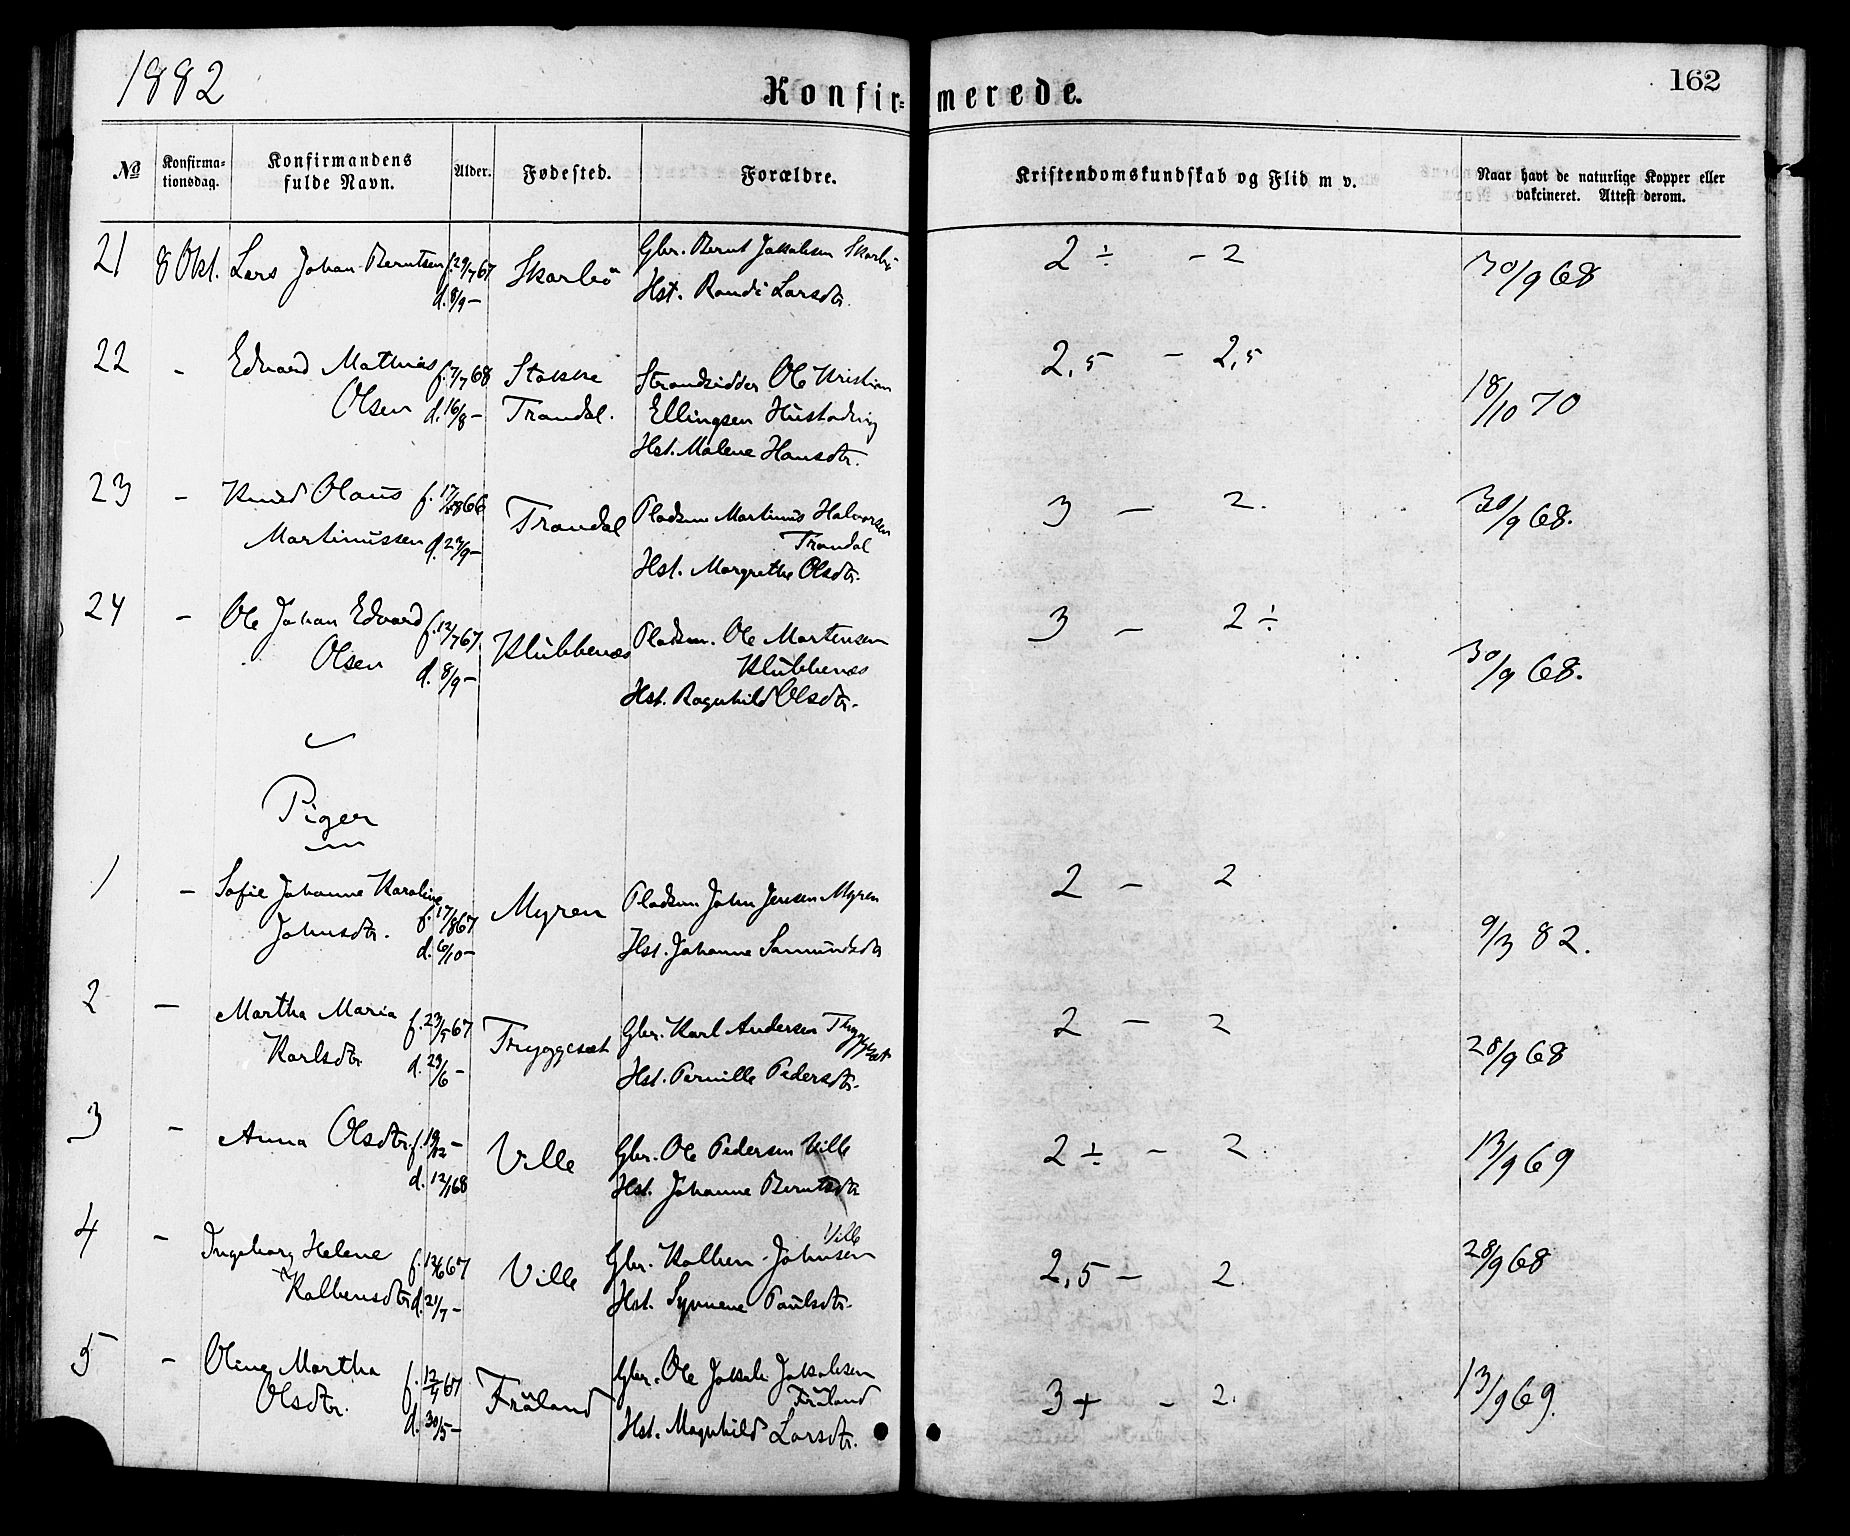 1882
Konfirmerede.
162
No
Konfirmationsdag.
Konfirmandens fulde Navn.
Alder.
Fødested.
Forældre.
Kristendomskundskab og Flid m v.
Naar havt de naturlige Kopper eller vakcineret. Attest derom.
21 8 Okt. Lars Johan Berntsen f. 29/7 67 Skarbö Gbr. Bernt Jakobsen Skarbö 2 ÷ - 2 30/9 68
d. 8/9 - Hst. Randi Larsdtr.
22 - Edvard Mathias f. 7/7 68 Stokke Strandsidder Ole Kristian 2,5 - 2,5 18/10 70
Olsen d. 16/8 - Trandal. Ellingsen Hustadvig
Hst. Malene Hansdtr.
23 - Knud Olaus f. 17/8 66 Trandal Pladsm Martinus Halvorsen 3 - 2. 30/9 68.
Martinussen d. 23/9 - Trandal
Hst. Margrethe Olsdtr.
24 - Ole Johan Edvard f. 12/7 67. Klubbenæs Pladsm. Ole Martensen 3 - 2 ÷ 30/9 68.
Olsen d. 8/9 - Klubbenæs
Hst. Ragnhild Olsdtr.
Piger
1 - Sofie Johanne Karoline f. 17/8 67 Myren Pladsm John Jensen Myren 2 - 2 9/3 82.
Johnsdtr. d. 6/10 - Hst. Johanne Samundsdtr
2 - Martha Maria f. 23/5 67 Tryggesæt Gbr. Karl Andersen Tryggesæt 2 - 2 28/9 68
Karlsdtr d. 23/6 - Hst. Pernille Pedersdtr.
3 - Anna Olsdtr. f. 19/12 - Ville Gbr. Ole Pedersen Ville 2 ÷ - 2. 13/9 69
d. 12/1 68 Hst. Johanne Berntsdtr
4 - Ingeborg Helene f. 12/6 67 Ville Gbr. Kolben Johnsen Ville 2,5 - 2. 28/9 68
Kolbensdtr d. 21/7 - Hst. Synnene Paulsdtr.
5 - Oline Martha f. 12/4 67 Fräland Gbr. Ole Jakob Jakobsen 3 + - 2. 13/9 69.
Olsdtr. d. 30/5 - Fräland
Hst. Magnhild Larsdtr.